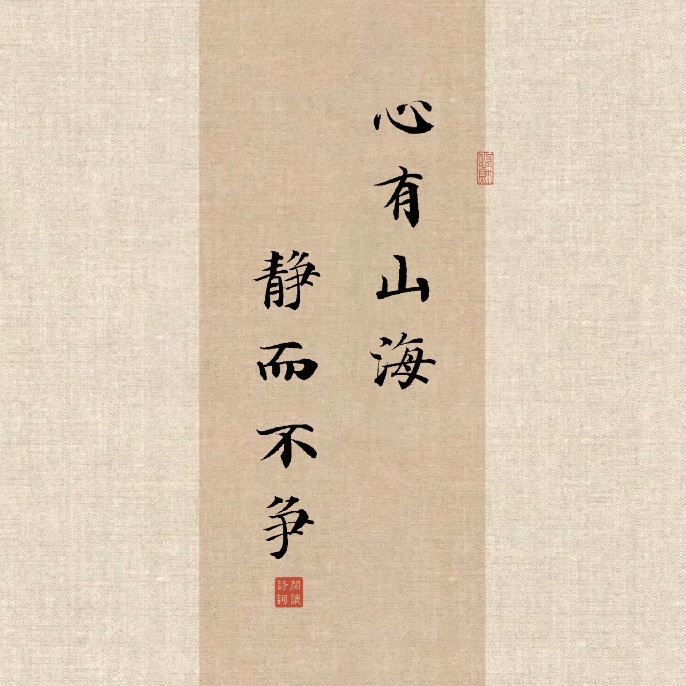 心有山海
静而不争
閱讀
詩詞